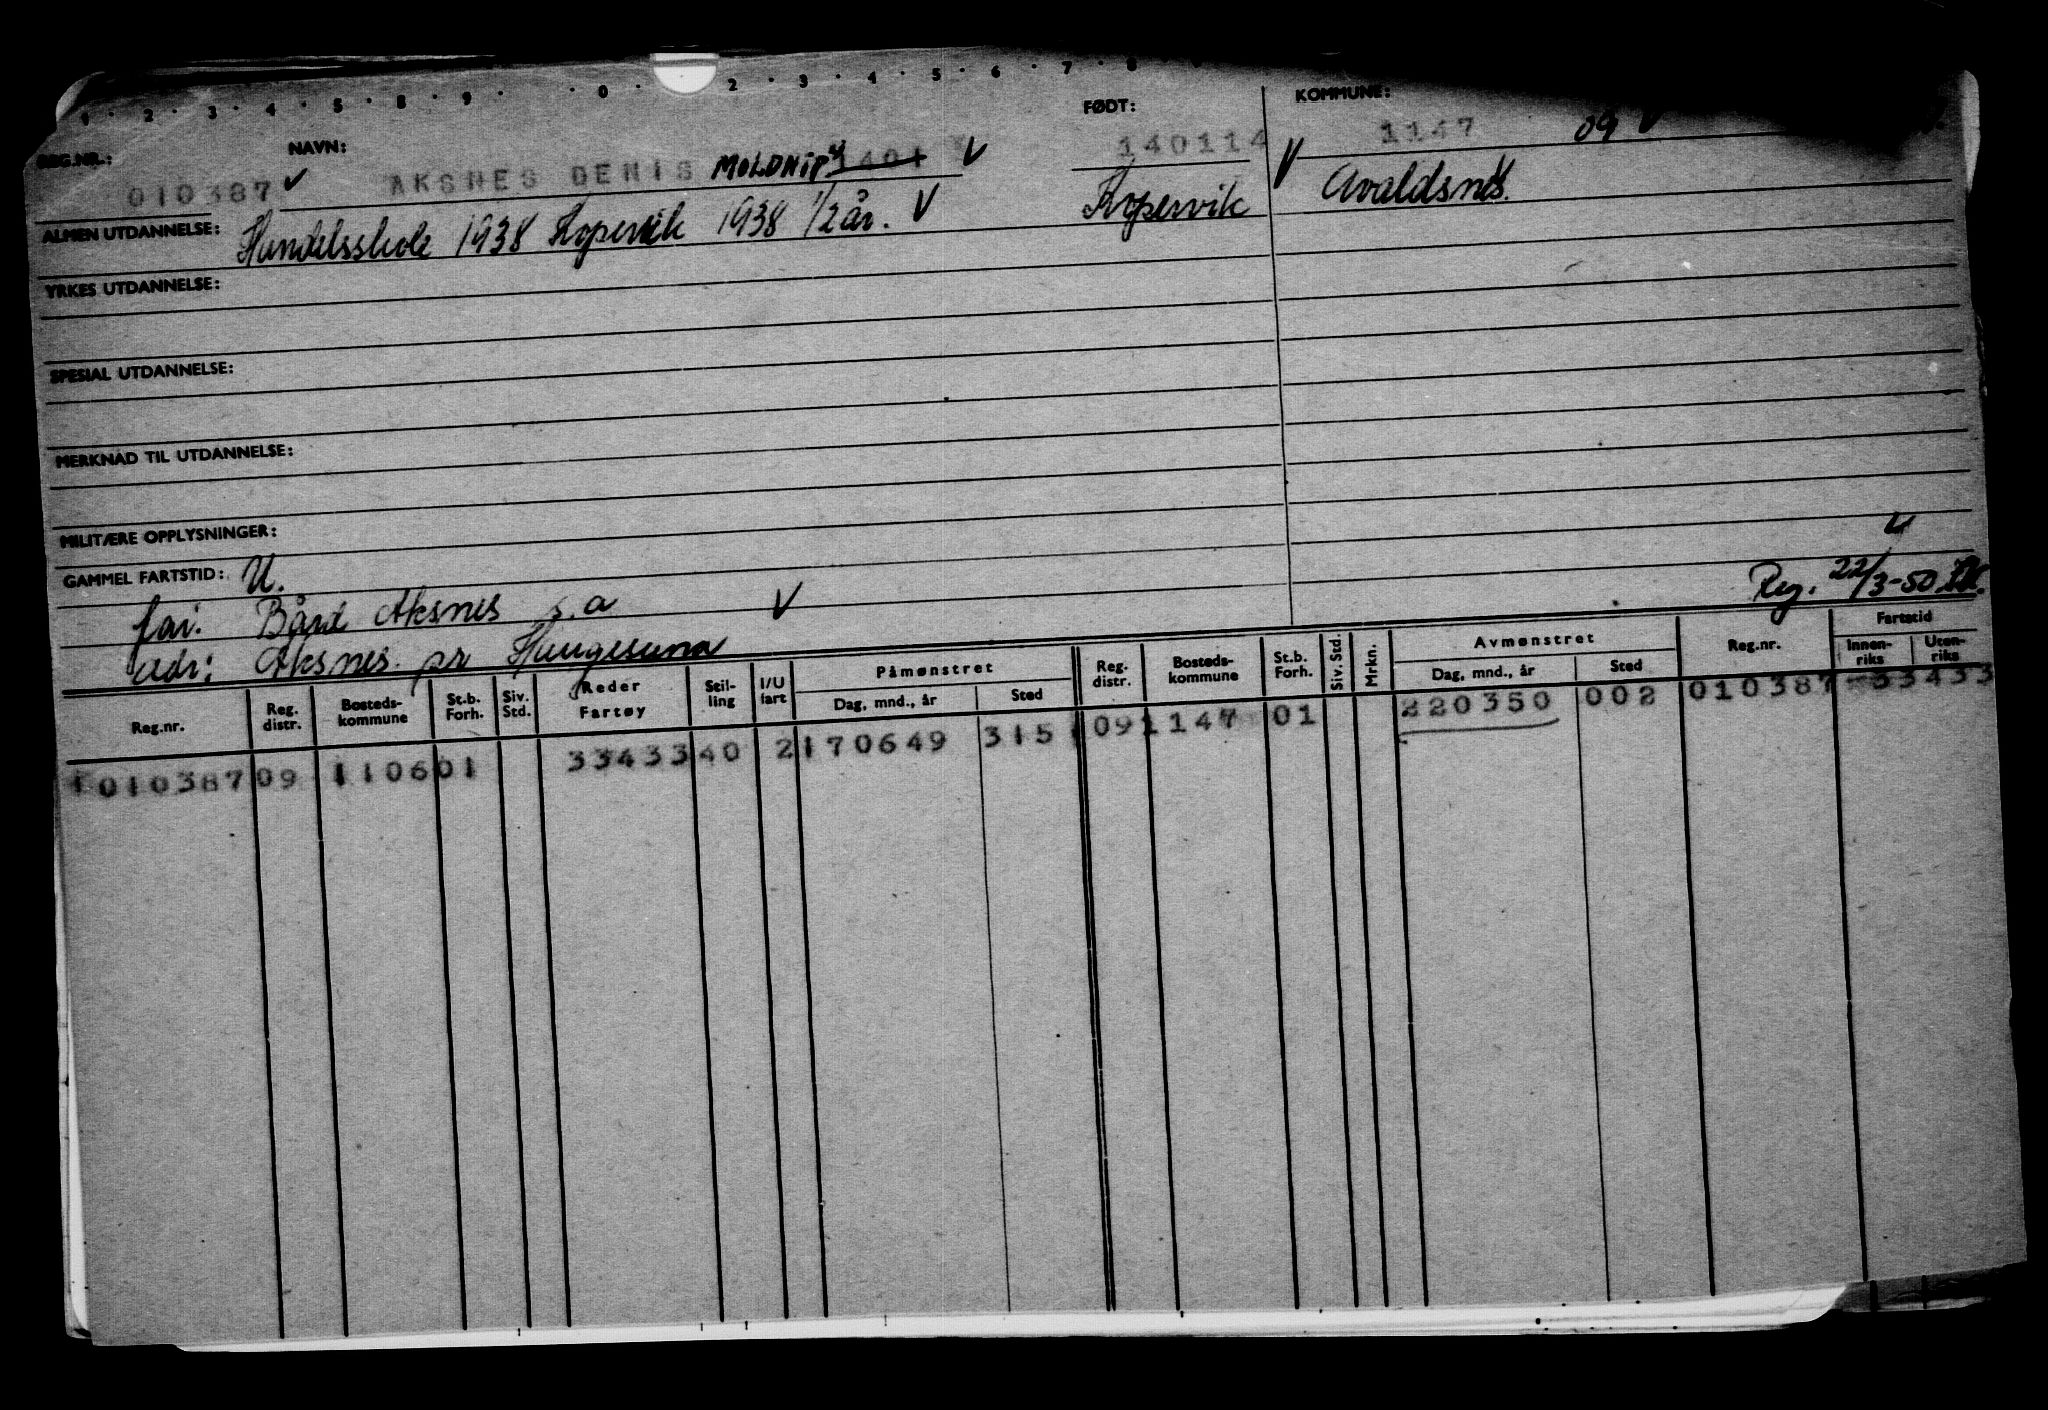 1 · 2 · 3 · 4 · 5 · 8 · 9 · · 0 · 2 · 3 · 4 · 5 · 6 · 7 · 8
REG.NR.: NAVN: FØDT: KOMMUNE:
010387 AKSNES DENIS MOLDNIP 1401 140114 1147 09
ALMEN UTDANNELSE: Handelsskole 1938 Kopervik 1938 1/2 år. Kopervik Avaldsnes.
YRKES UTDANNELSE:
SPESIAL UTDANNELSE:
MERKNAD TIL UTDANNELSE:
MILITÆRE OPPLYSNINGER:
GAMMEL FARTSTID: U.
far. Bård Aksnes s.a Reg. 22/3-50
Adr: Aksnes pr Haugesund
Reg.nr. Reg. distr. Bosteds-kommune St.b. Forh. Siv. Std. Reder Fartøy Stil-ling I/U fart Påmønstret Dag, mnd., år Sted Reg. distr. Bosteds-kommune St.b. Forh. Siv. Std. Mrkn. Avmønstret Dag, mnd., år Sted Reg.nr. Fartstid Innen-riks Uten-riks
1 010387 09 1106 01 33433 40 2 170649 315 09 1147 01 220350 002 010387 33433